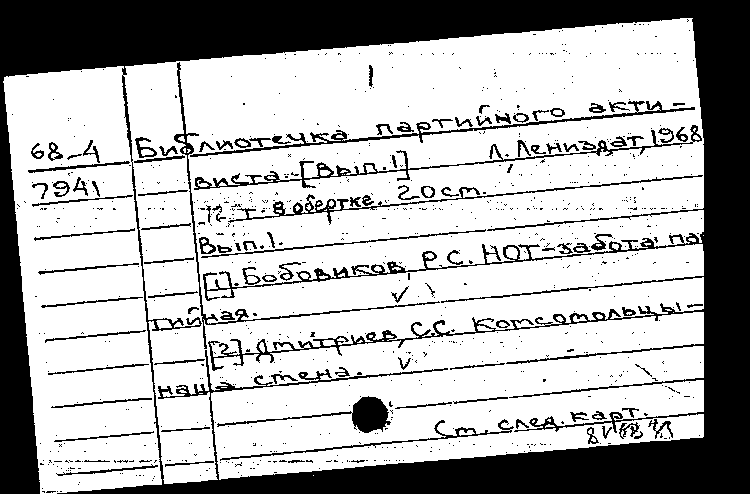 1
68-4 Библиотечка партийного акти-
7941 виста.-[Вып.1] Л. Лениздат, 1968
12 т. в обертке. 20 cm.
Вып.1.
[1]. Бобовиков, Р.С. НОТ-забота пар
тийная.
[2]. Дмитриев, С.С. Комсомольцы-
наша стена.
Ст. след. карт.